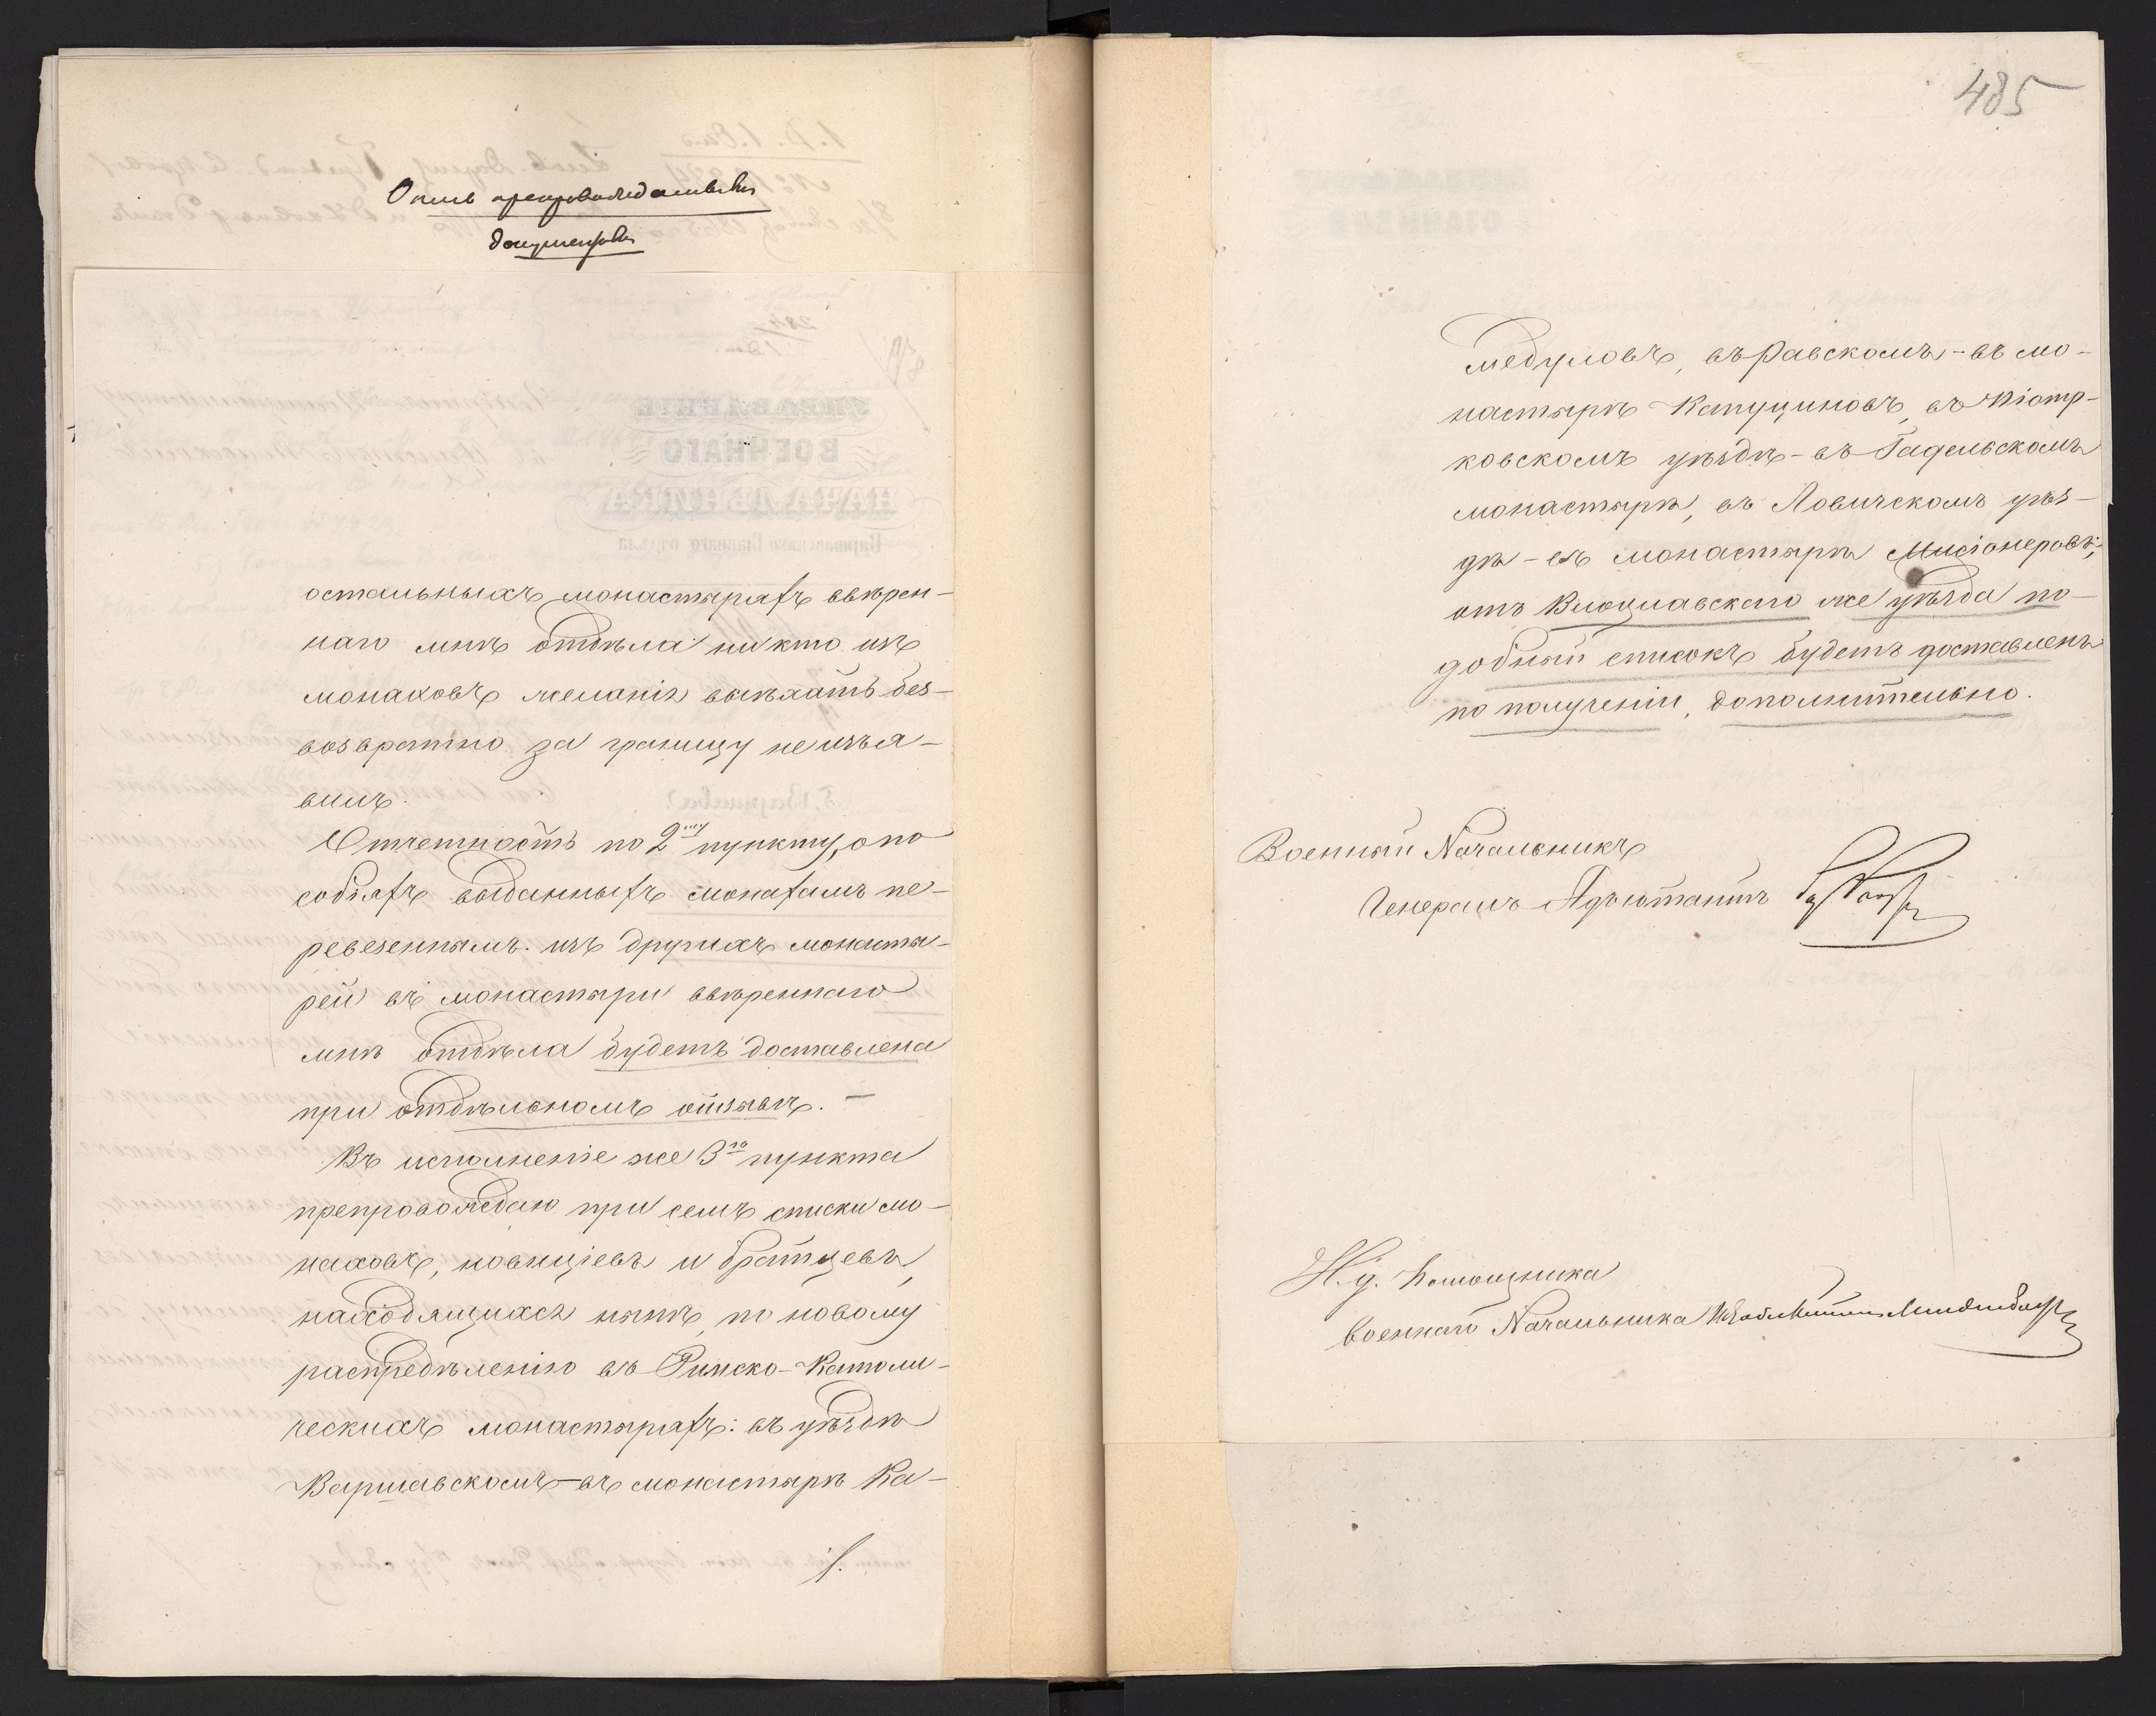 Опись препровождаемыхъ
документовъ
остальныхъ монастыряхъ ввѣрен-
наго мнѣ отдѣла никто изъ
монаховъ желанія выѣхать без-
возвратно за границу не изъя-
вилъ.
Отчетность по 2му пункту, о по
собіяхъ выданныхъ монахамъ пе-
ревезеннымъ изъ другихъ монасты-
рей въ монастыри ввѣреннаго
мнѣ отдѣла будетъ доставлена
при отдѣльномъ отзывѣ. —
Въ исполненіе же 3го пункта
препровождаю при семъ списки мо-
наховъ, новиціевъ и братцевъ,
находящихся нынѣ, по новому
распредѣленію въ Римско-Католи-
ческихъ монастыряхъ: въ уѣздѣ
Варшавскомъ – въ монастырѣ Ка-
485
медуловъ, въ Равскомъ – въ мо-
настырѣ Капуциновъ, въ Піотр-
ковскомъ уѣздѣ – въ Гидельскомъ
монастырѣ, въ Ловичскомъ уѣз-
дѣ – въ монастырѣ Мисіонеровъ;
отъ Влоцлавскаго же уѣзда по-
добный списокъ будетъ доставленъ
по полученіи, дополнительно.
Военный Начальникъ
Генералъ Адъютантъ
И. д. Помощника
Военнаго Начальника
УПРАВЛЕНІЕ
ВОЕННАГО
НАЧАЛЬНИКА
Варшавскаго Главнаго отдѣла
Г. Варшава